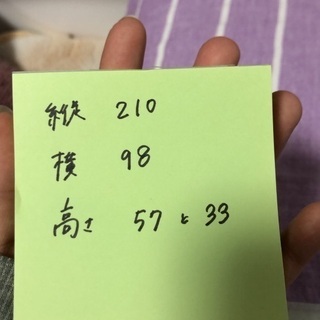 縦 210
横 98
高さ 57と33